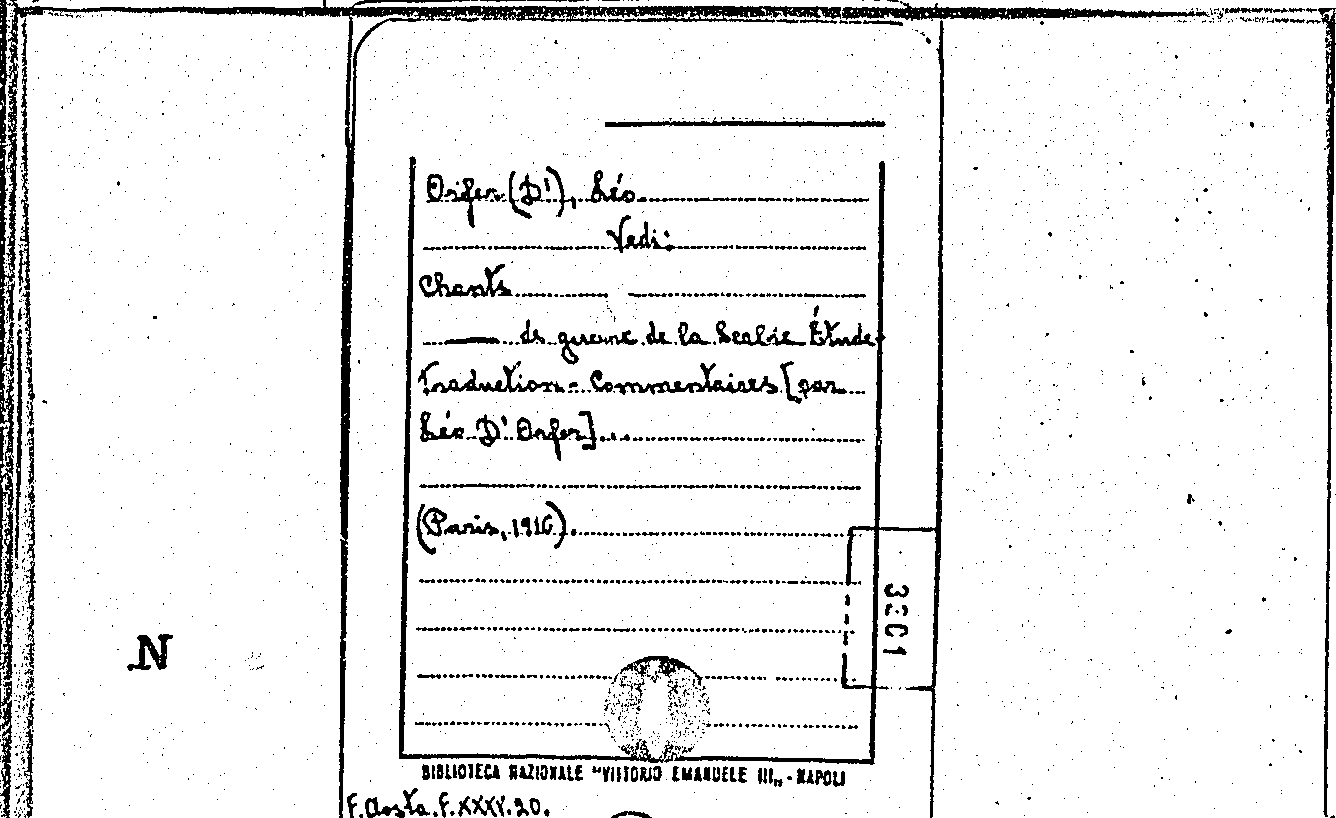 Orfer (D'), Léo.
Vedi:
Chants
—— de guerre de la Serbie Étude-
Traduction - Commentaires [par
Léo D'Orfer]...
(Paris, 1916).
3201
N
BIBLIOTECA NAZIONALE "VITTORIO EMANUELE III„ - NAPOLI
F. Aosta. F. XXXV. 20.